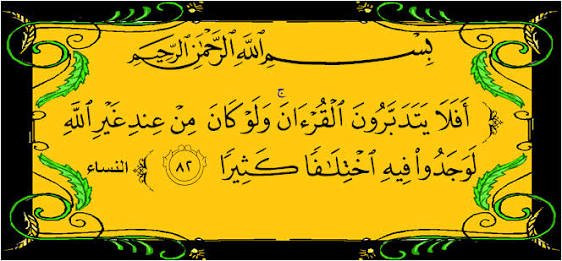 بِسْمِ اللَّهِ الرَّحْمَٰنِ الرَّحِيمِ
﴿ أَفَلَا يَتَدَبَّرُونَ ٱلْقُرْءَانَ ۚ وَلَوْ كَانَ مِنْ عِندِ غَيْرِ ٱللَّهِ
لَوَجَدُوا۟ فِيهِ ٱخْتِلَـٰفًا كَثِيرًا ٨٢ ﴾ النساء